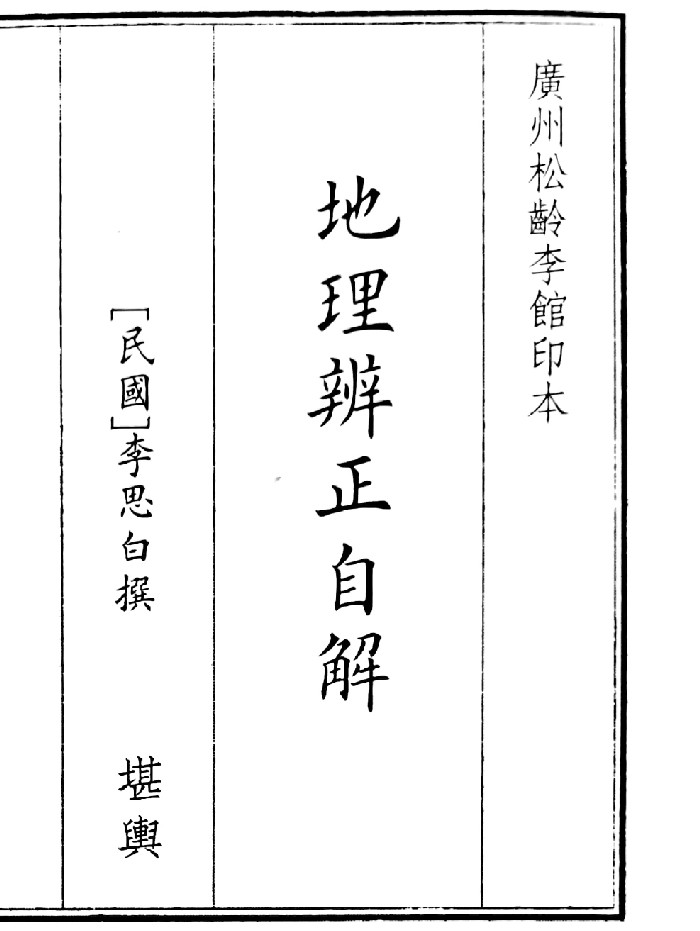 廣州松齡李館印本
地理辨正自解
［民國］李思白撰
堪輿